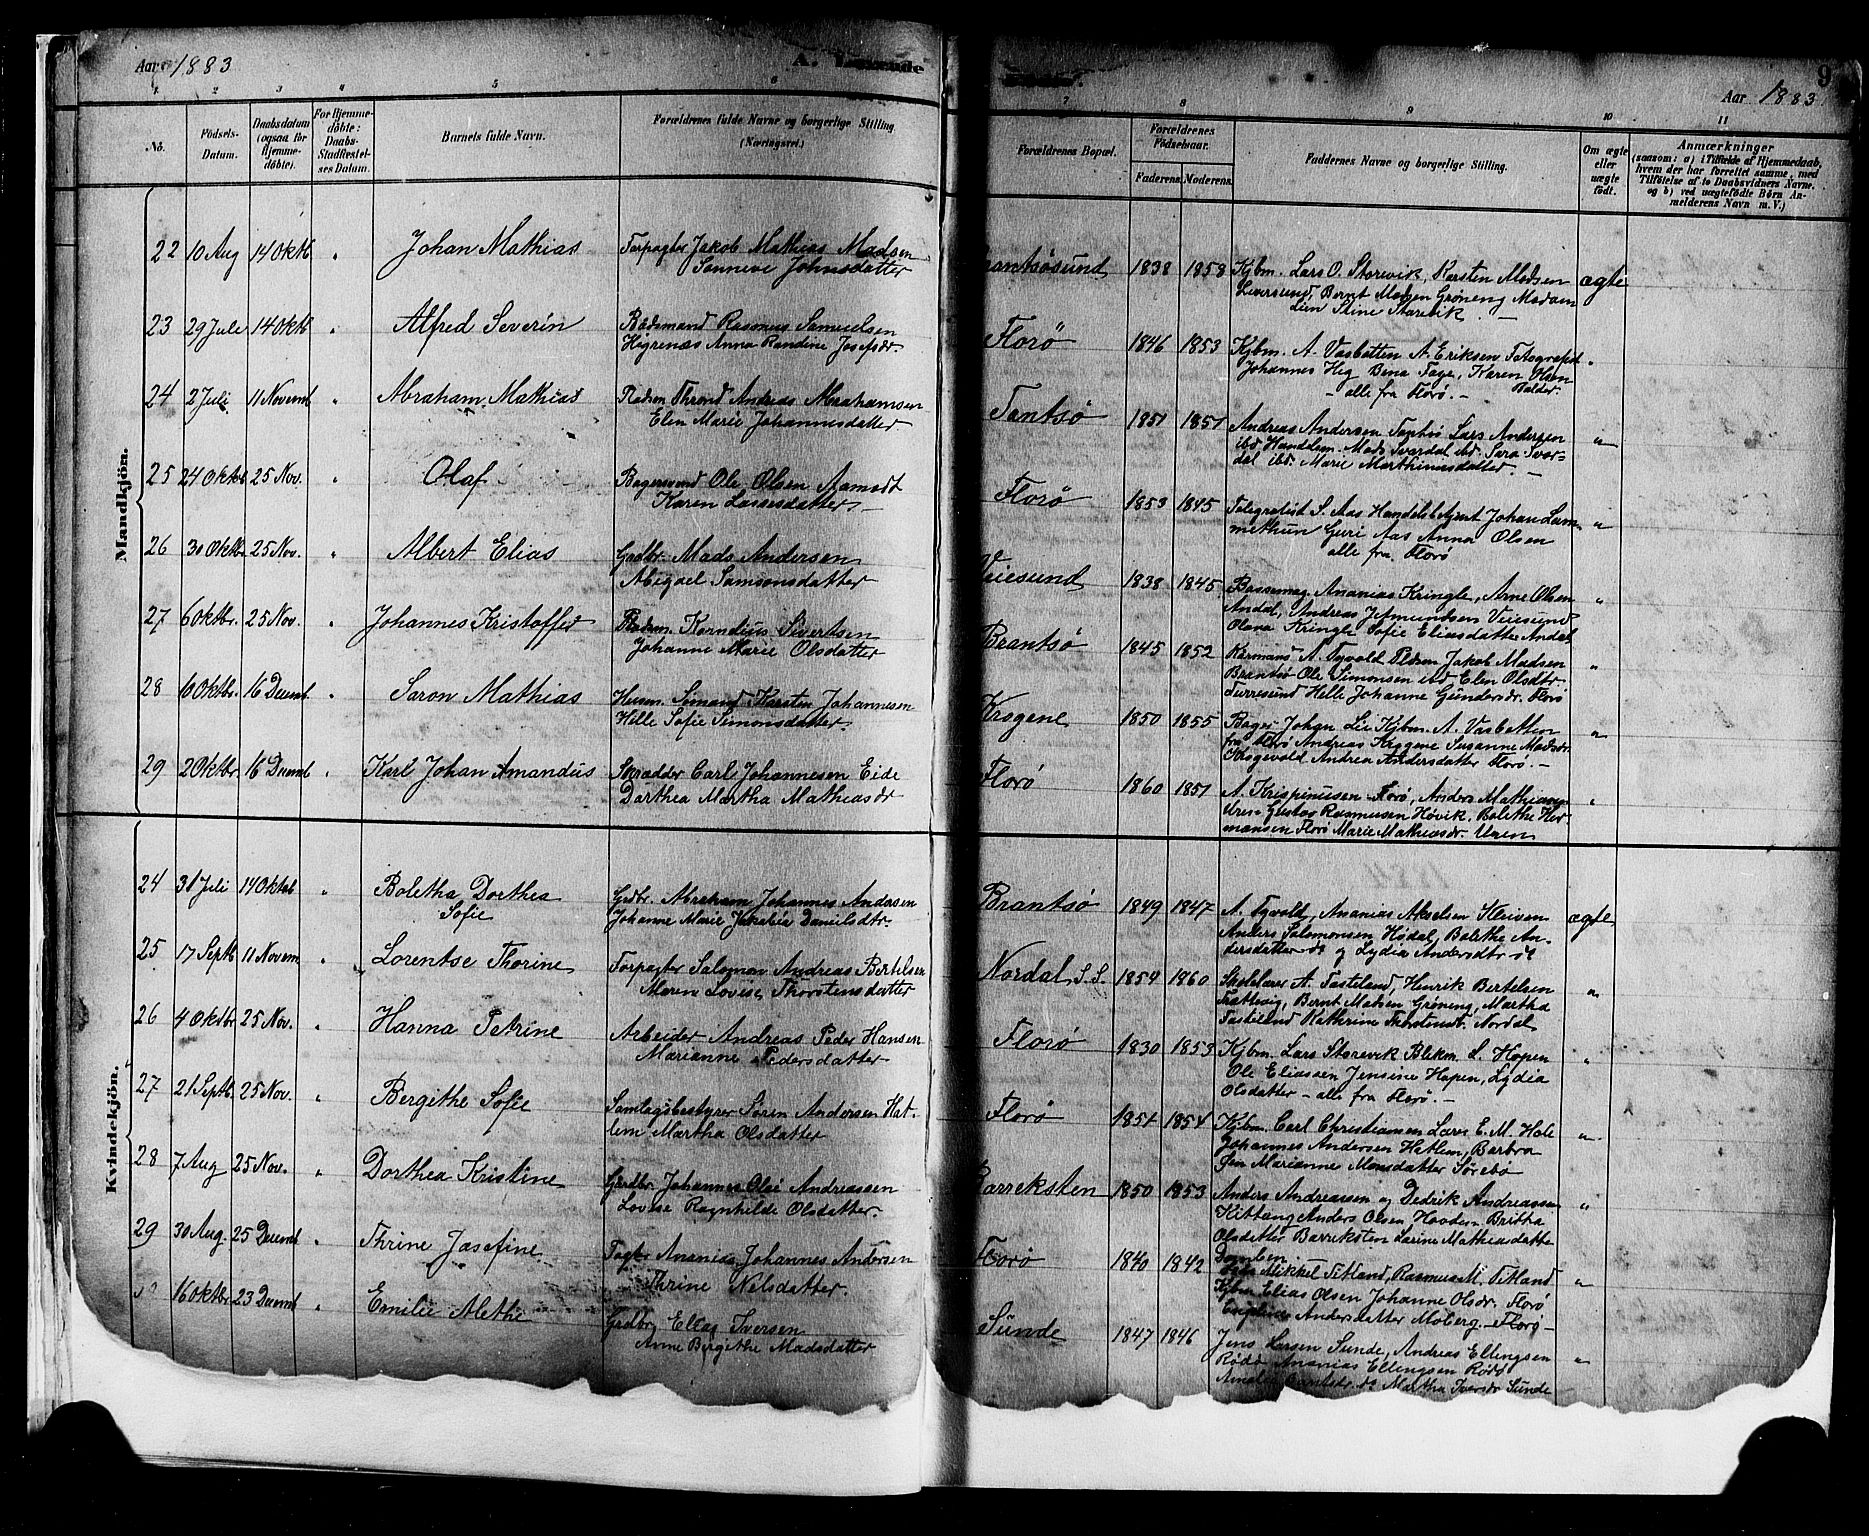 Aar 1883
A.
9
Aar 1883
1 2 3 4 5 6
7 8 9 10 11
No.
Födsels-Datum.
Daabsdatum (ogsaa for Hjemmedöbte).
For Hjemmedöbte: Daabs-Stadfæstelses Datum.
Barnets fulde Navn.
Forældrenes fulde Navne og borgerlige Stilling (Næringsvei.)
Forældrenes Bopæl.
Forældrenes Födselsaar.
Faderens. Moderens.
Faddernes Navne og borgerlige Stilling.
Om ægte eller uægte födt.
Anmærkninger
(saasom: a) i Tilfælde af Hjemmedaab, hvem der har forrettet samme, med Tilföielse af to Daabsvidners Navne, og b) ved uægtefödte Börn Anmelderens Navn m. V.)
Mandkjön.
22 10 Aug 14 Oktb " Johan Mathias Forpagter Jakob Mathias Madsen
Sanneve Johnsdatter
1838 1858 Kjbm. Lars O. Storevik, Karsten Madsen ægte
Bernt Madsen Grøneng Madam
Lien Stine Storevik. —
23 29 Jule 14 Oktb " Alfred Severin Baadsmand Rasmus Samuelsen
Hegrenæs Anna Randine Josefsdr.
Florø 1846 1853 Kjbm. A. Vasbotten A. Eriksen Fotografist "
Johannes Heg Bena Faye, Karen Olsen
— alle fra Florø. —
24 2 Juli 11 Novemb " Abraham Mathias Thrond Andreas Abrahamsen
Elen Marie Johannesdatter.
Tantsø 1851 1851 Andreas Andersen Tantsø Lars Andersen "
ibd Handlem. Mads Svardal ibd. Sara Svar-
dal ibd. Marie Marthinusdatter —
25 24 Oktb 25 Nov. " Olaf Bagersvend Ole Olsen Aamodt
Karen Lassesdatter. —
Florø 1853 1845 Telegrafist S. Aas Handelsbetjent Johan Lam- "
methun Guri Aas Anna Olsen
alle fra Florø
26 30 Oktbr. 25 Nov. " Albert Elias Grdbr. Mads Andersen
Abigael Samsonsdatter
Veiesund 1838 1845 Ananias Kringle, Arne Olsen "
Andal, Andreas Jetmundsen Veiesund
Olava Kringle Sofie Eliasdatte Andal
27 6 Oktbr. 25 Nov. " Johannes Kristoffer Kornelius Sivertsen
Johanne Marie Olsdatter
Brantsø 1845 1852 A. Tyvold Pedsen Jakob Madsen "
Brantsø Ole Simonsen ibd Elen Olsdtr
Helle Johanne Gundersdr. Florø
28 10 Oktbr. 16 Decemb " Saron Mathias Husm. Simond Karsten Johannesen
Helle Sofie Simonsdatter.
Krogene 1850 1855 Bager Johan Lie Kjbm. A. Vasbotten "
fra Florø Andreas Krogene Susanne Madsdr.
Krogevold Andrea Andersdatter Florø. —
29 2 Oktbr. 16 Decemb " Karl Johan Amandus Skrædder Carl Johannesen Eide
Dorthea Martha Mathiasdr
Florø 1860 1851 A. Krispinusen Florø, Anders Mathiasen "
Uren Gustav Rasmusen Høvik, Bolethe Her-
mansen Florø Marie Mathiasdr. Uren
Kvindekjön.
24 31 Juli 14 Oktob " Boletha Dorthea
Sofie
Grdbr. Abraham Johannes Andersen
Johanne Marie Jakobie Danielsdtr.
Brantsø 1849 1847 A. Tyvold, Ananias Akselsen Kleiven ægte
Anders Salomonsen Hødal, Bolethe An-
dersdatter do og Lydia Andersdtr do
25 17 Septb 11 Novem " Lorentse Thorine Forpagter Salomon Andreas Bertelsen
Maren Lovise Thorstensdatter
Nordal S.S. 1854 1860 Skolelærer A. Fasteland, Henrik Bertelsen "
Bernt Madsen Grøneng, Martha
Fasteland Kathrine Thorstensdt. Nordal
26 4 Oktbr 25 Nov. " Hanna Petrine Arbeider Andreas Peder Hansen
Marianne Pedersdatter
Florø 1830 1853 Kjbm. Lars Storevik Blikm. L. Hopen "
Ole Eliassen Jensine Hopen, Lydia
Olsdatter — alle fra Florø. —
27 21 Septb. 25 Nov. " Bergithe Sofie Samlagsbestyrer Søren Andersen Hat-
lem Martha Olsdatter
Florø 1851 1854 Kjbm. Carl Christiansen Lærer E. M. Hole "
Johannes Andersen Hatlem, Barbra
Marianne Monsdatter Sørebø
28 7 Aug 25 Nov. " Dorthea Kristine Gardbr. Johannes Olai Andreassen
Lovise Ragnhilde Olsdatter.
Barreksten 1850 1853 Anders Andreassen og Dedrik Andreassen "
Kittang Anders Olsen Hovden Britha
Olsdatter Barreksten Larine Mathiasdatte
29 30 Aug. 25 Decemb " Thrine Josefine Ananias Johannes Andersen
Thrine Nilsdatter.
Florø 1840 1842 Mikkel Titland, Rasmus M. Titland "
Kjbm Elias Olsen Johanne Olsdr. Florø
Andersdatter Moberg — Florø —
16 Oktbr. 23 Decemb " Emilie Alethe Grdbr. Elias Iversen
Anne Bergithe Madsdatter
Sunde 1847 1846 Jens Larsen Sunde, Andreas Ellingsen "
Rødø Ananias Ellingsen Rødø
do Martha Iversdr Sunde